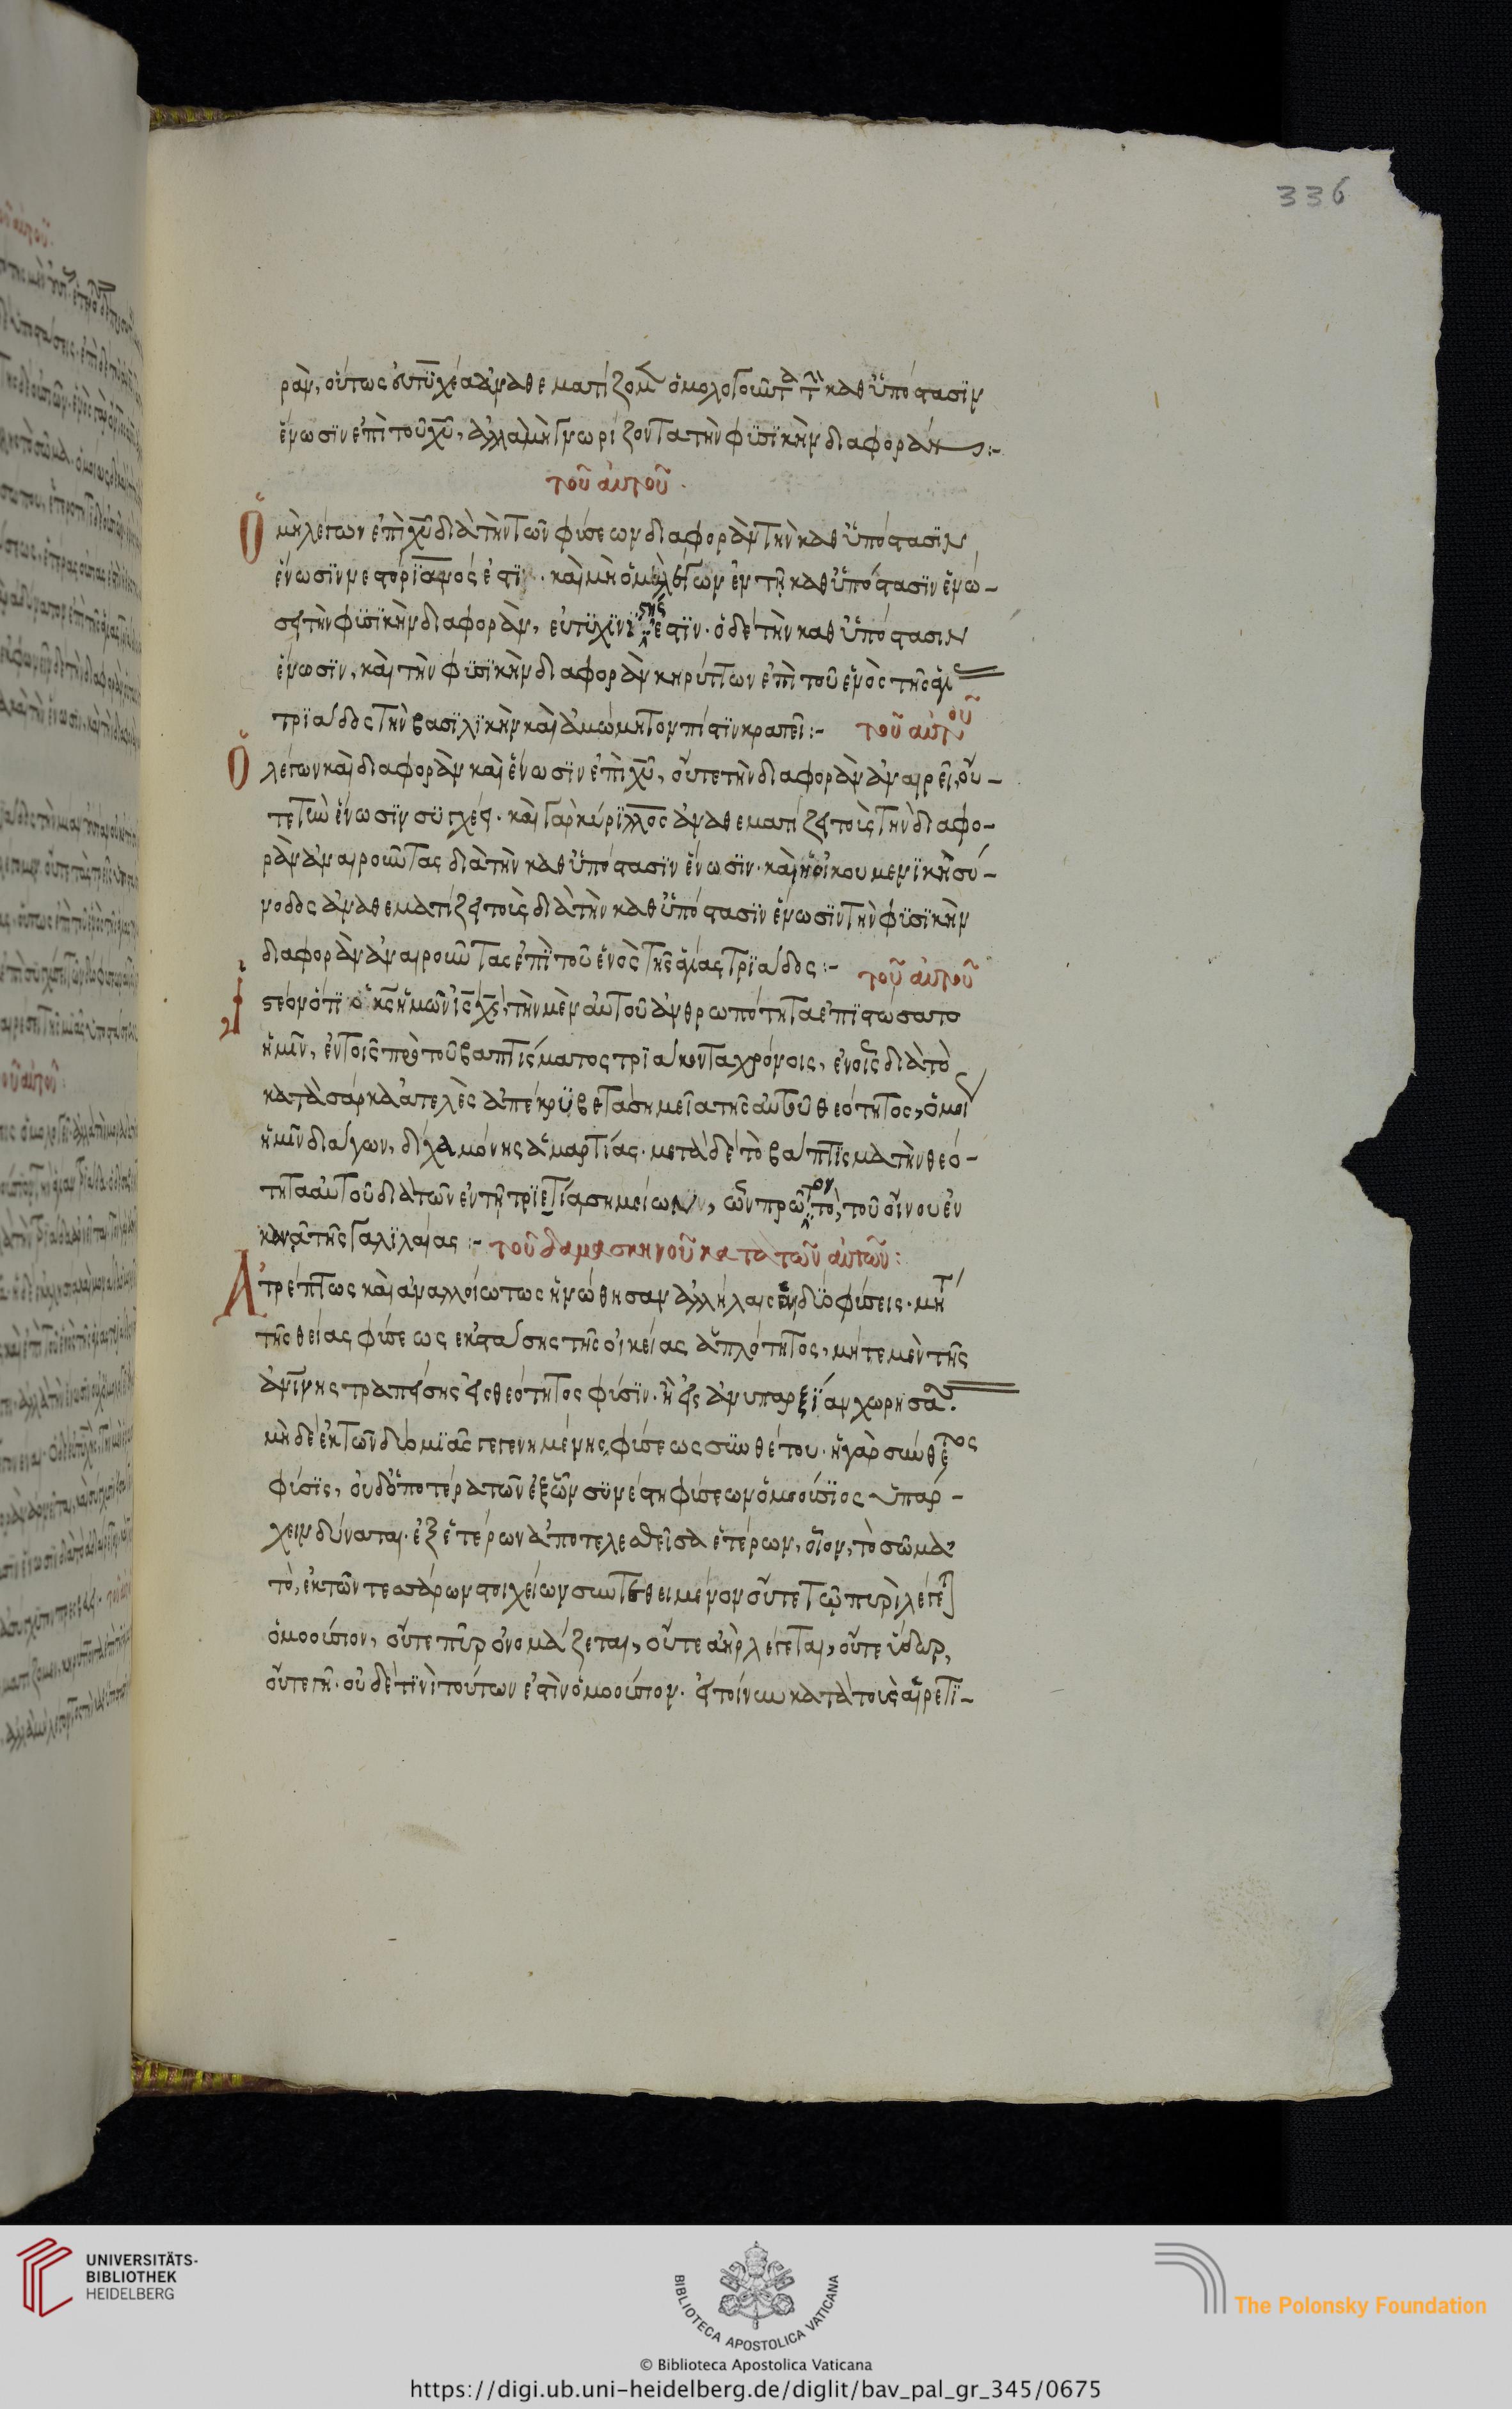 336
ραν, οὕτως εὐτυχέα ἀναθεματίζομεν ὁμολογοῦντα τὴν καθ' ὑπόστασιν
ἕνωσιν ἐπὶ τοῦ χυ, ἀλλὰ μὴ γνωρίζοντα τὴν φυσικὴν διαφοράν :-
τοῦ αὐτοῦ.
Ὁ μὴ λέγων ἐπὶ χυ διὰ τὴν τῶν φύσεων διαφορὰν τὴν καθ' ὑπόστασιν
ἕνωσιν νεστοριανός ἐστιν. καὶ μὴ ὁμολογῶν ἐν τῇ καθ' ὑπόστασιν ἑνώ-
σει τὴν φυσικὴν διαφορὰν, εὐτυχινιστής ἐστιν. ὁ δὲ τὴν καθ' ὑπόστασιν
ἕνωσιν, καὶ τὴν φυσικὴν διαφορὰν κηρύττων ἐπὶ τοῦ ἑνὸς τῆς ἁγι
τριάδος τὴν βασιλικὴν καὶ ἀμώμητον πίστιν κρατεῖ :- τοῦ αὐτοῦ
Ὁ λέγων καὶ διαφορὰν καὶ ἕνωσιν ἐπὶ χυ, οὔτε τὴν διαφορὰν ἀναιρεῖ, οὔ-
τε τὴν ἕνωσιν συγχέει. καὶ γὰρ κύριλλος ἀναθεματίζει τοὺς τὴν διαφο-
ρὰν ἀναιροῦντας διὰ τὴν καθ' ὑπόστασιν ἕνωσιν. καὶ ἡ οἰκουμενικὴ σύ-
νοδος ἀναθεματίζει τοὺς διὰ τὴν καθ' ὑπόστασιν ἕνωσιν τὴν φυσικὴν
διαφορὰν ἀναιροῦντας ἐπὶ τοῦ ἑνὸς τῆς ἁγίας τριάδος :- τοῦ αὐτοῦ
Ἰστέον ὅτι ὁ κς ἡμῶν ις χς, τὴν μὲν αὐτοῦ ἀνθρωπότητα ἐπιστώσατο
ἡμῖν, ἐν τοῖς πρὸ τοῦ βαπτίσματος τριάκοντα χρόνοις, ἐν οἷς διὰ τὸ
κατὰ σάρκα ἀτελὲς ἀπέκρυβε τὰ σημεῖα τῆς αὐτοῦ θεότητος, ὁμοι
ἡμῖν διάγων, δίχα μόνης ἁμαρτίας. μετὰ δὲ τὸ βάπτισμα τὴν θεό-
τητα αὐτοῦ διὰ τῶν ἐν τῇ τριετίᾳ σημείων, ὧν πρῶτον τὸ, τοῦ οἴνου ἐν
κανᾷ τῆς γαλιλαίας :- τοῦ δαμασκηνοῦ κατὰ τῶν αὐτῶν :
Ἀτρέπτως καὶ ἀναλλοιώτως ἡνώθησαν ἀλλήλαις αἱ δύο φύσεις. μήτ
τῆς θείας φύσεως ἐκστάσης τῆς οἰκείας ἁπλότητος, μήτε μὲν τῆς
ἀνίνης τραπείσης εἰς θεότητος φύσιν. ἢ εἰς ἀνυπαρξίαν χωρησα.
μηδὲ ἐκ τῶν δύο μιᾶς γεγενημένης φύσεως συνθέτου. ἡ γὰρ σύνθετος
φύσις, οὐδ' ὁποτέρα τῶν ἐξ ὧν συνέστη φύσεων ὁμοούσιος ὑπάρ-
χειν δύναται. ἐξ ἑτέρων ἀποτελεσθεῖσα ἑτέρων, οἷον, τὸ σῶμα
τὸ, ἐκ τῶν τεσσάρων στοιχείων συντεθειμένον οὔτε τῷ πυρὶ λέγε
ὁμοούσιον, οὔτε πῦρ ὀνομάζεται, οὔτε ἀὴρ λέγεται, οὔτε ὕδωρ,
οὔτε γῆ. οὐδέ τινι τούτων ἐστὶν ὁμοούσιον. εἰ τοίνυν κατὰ τοὺς αἱρετι-
UNIVERSITÄTS-
BIBLIOTHEK
HEIDELBERG
BIBLIOTECA APOSTOLICA VATICANA
The Polonsky Foundation
© Biblioteca Apostolica Vaticana
https://digi.ub.uni-heidelberg.de/diglit/bav_pal_gr_345/0675